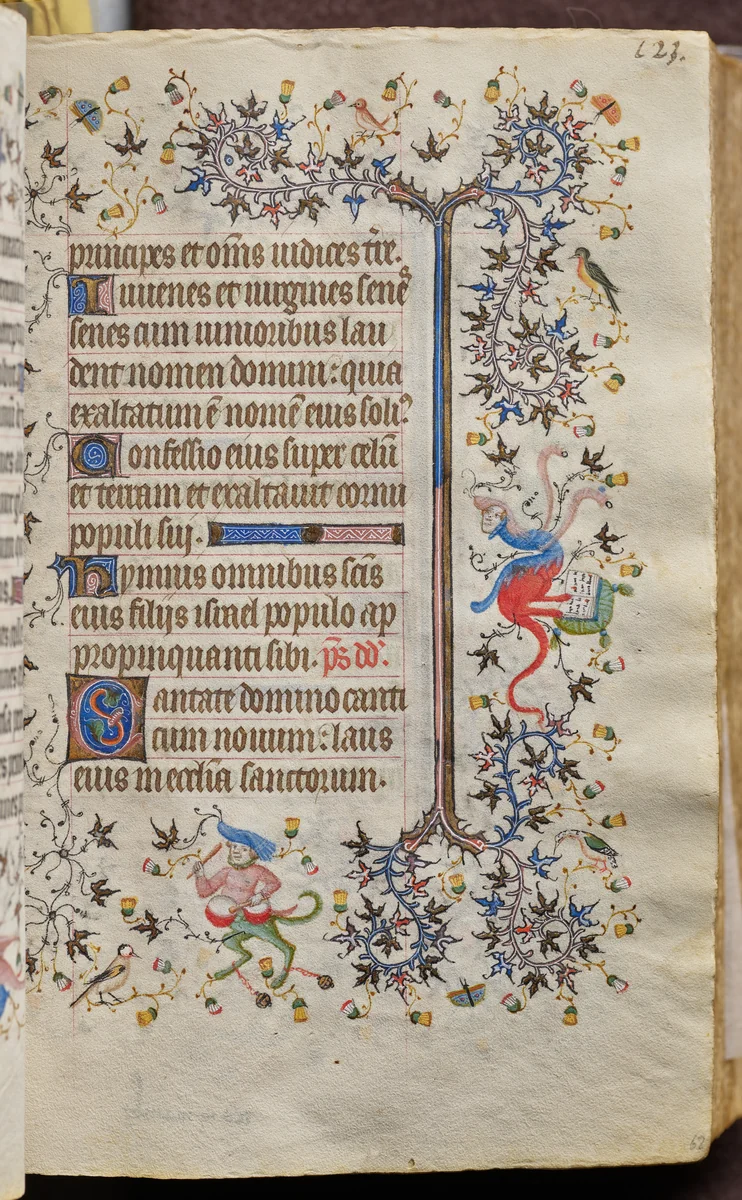 623.
principes et om̄s iudices t̄re.
Iuuenes et uirgines senes
senes cum iunioribus lau
dent nomen domini: quia
exaltatum ē nomē eius soliꝰ
Confessio eius super celū
et terram et exaltauit cornu
populi sui.
Hymnus omnibus sc̄is
eius filijs isrnel populo ap
propinquanti sibi. p̄s dd̄.
Cantate domino canti
cum nouum: laus
eius in eccl̄ia sanctorum.
62